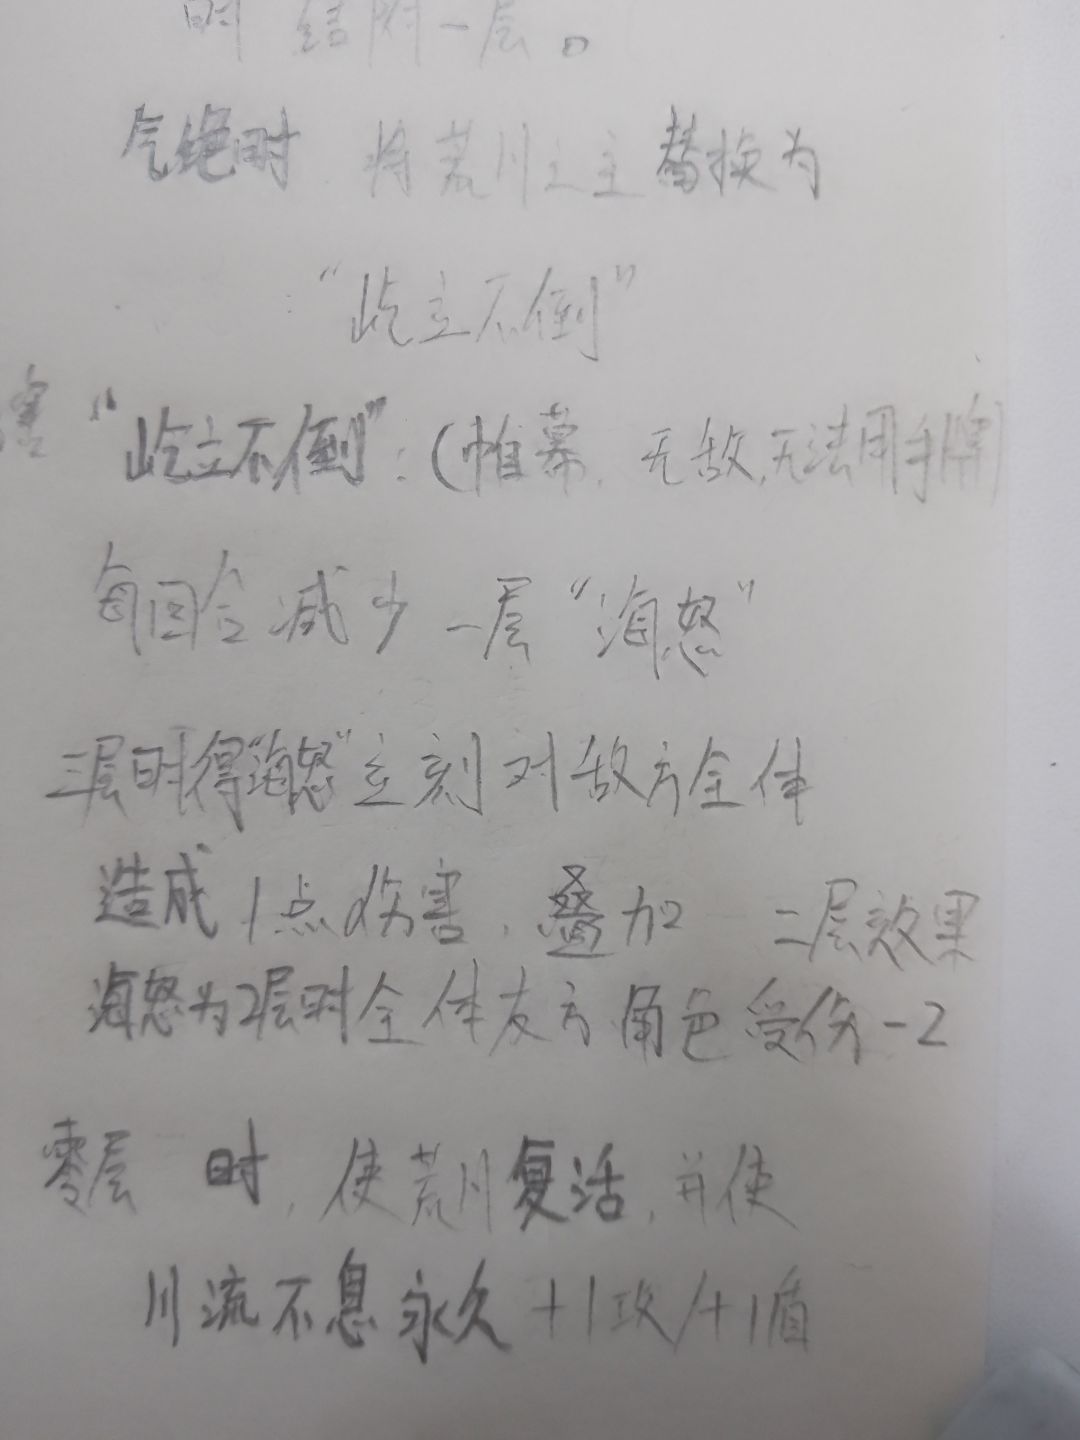 时 结附一层。
气绝时 将荒川之主替换为
“屹立不倒”
害 “屹立不倒”：(帷幕，无敌，无法用手牌)
每回合减少一层“海怒”
三层时得“海怒”立刻对敌方全体
造成1点伤害，叠加 二层效果
海怒为2层时全体友方角色受伤-2
零层 时，使荒川复活，并使
川流不息永久+1攻/+1盾